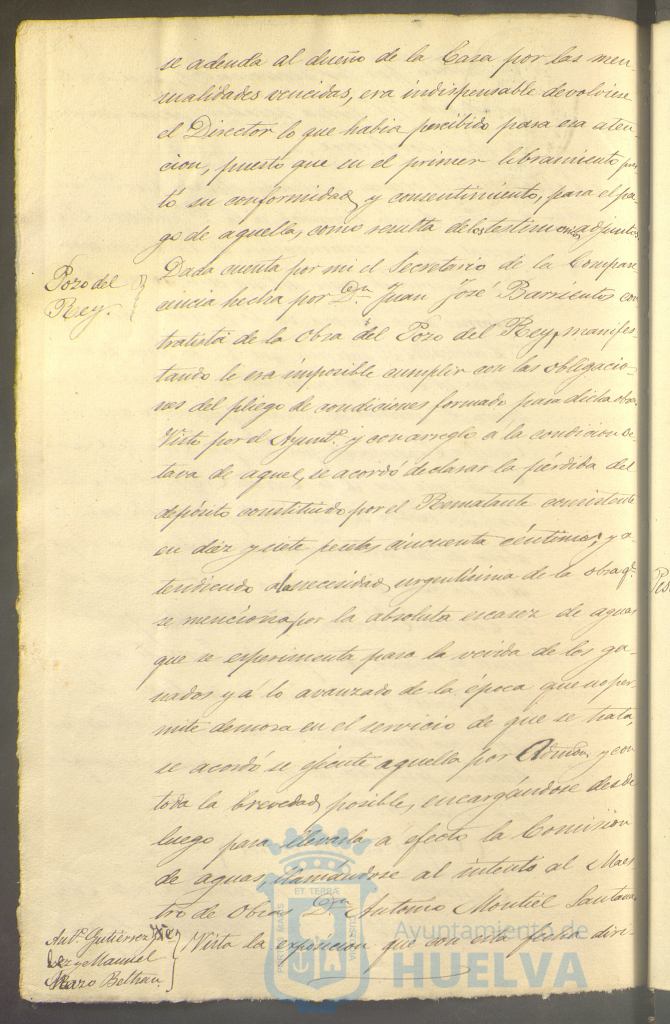 se adeuda al dueño de la Casa por las men-
sualidades vencidas, era indispensable devolviese
el Director lo que habia percibido para esa aten-
cion, puesto que en el primer libramiento pres-
tó su conformidad y consentimiento, para el pa-
go de aquella, como resulta de los testimonios adjuntos.
Pozo del
Rey.
Dada cuenta por mi el Secretario de la Compare-
cencia hecha por Dn. Juan José Barrientos con-
tratista de la Obra del Pozo del Rey, manifes-
tando le era imposible cumplir con las obligacio-
nes del pliego de condiciones formado para dicha obra.
Visto por el Ayuntº. y con arreglo á la condicion oc-
tava de aquel, se acordó declarar la pérdida del
depósito constituido por el Rematante consistente
en diez y siete pesetas cincuenta céntimos; y a-
tendiendo á la necesidad urgentísima de la obra qe.
se menciona, por la absoluta escasez de aguas
que se esperimenta para la vevida de los ga-
nados y á lo avanzado de la época que no per-
mite demora en el servicio de que se trata,
se acordó se ejecute aquella por Admon. y con
toda la brevedad posible, encargándose desde
luego para llevarla á efecto la Comision
de aguas, llamándose al intento al Maes-
tro de Obras Dn. Antonio Montiel Santana
Antº. Gutierrez
y Manuel
Mazo Beltran.
Vista la exposicion que con esta fecha diri-
ET TERRÆ
Ayuntamiento de
HUELVA